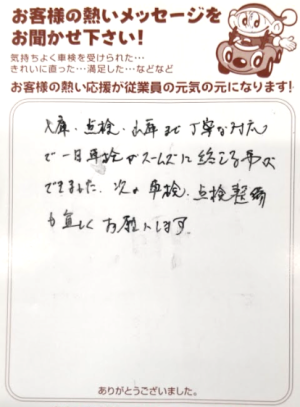 お客様の熱いメッセージを
お聞かせ下さい!
気持ちよく車検を受けられた…
きれいに直った…満足した…などなど
お客様の熱い応援が従業員の元気の元になります!
入庫・点検・出庫まで丁寧な対応
で一日車検がスムーズに終える事が
できました。次の車検、点検整備
も宜しくお願いします。
ありがとうございました。